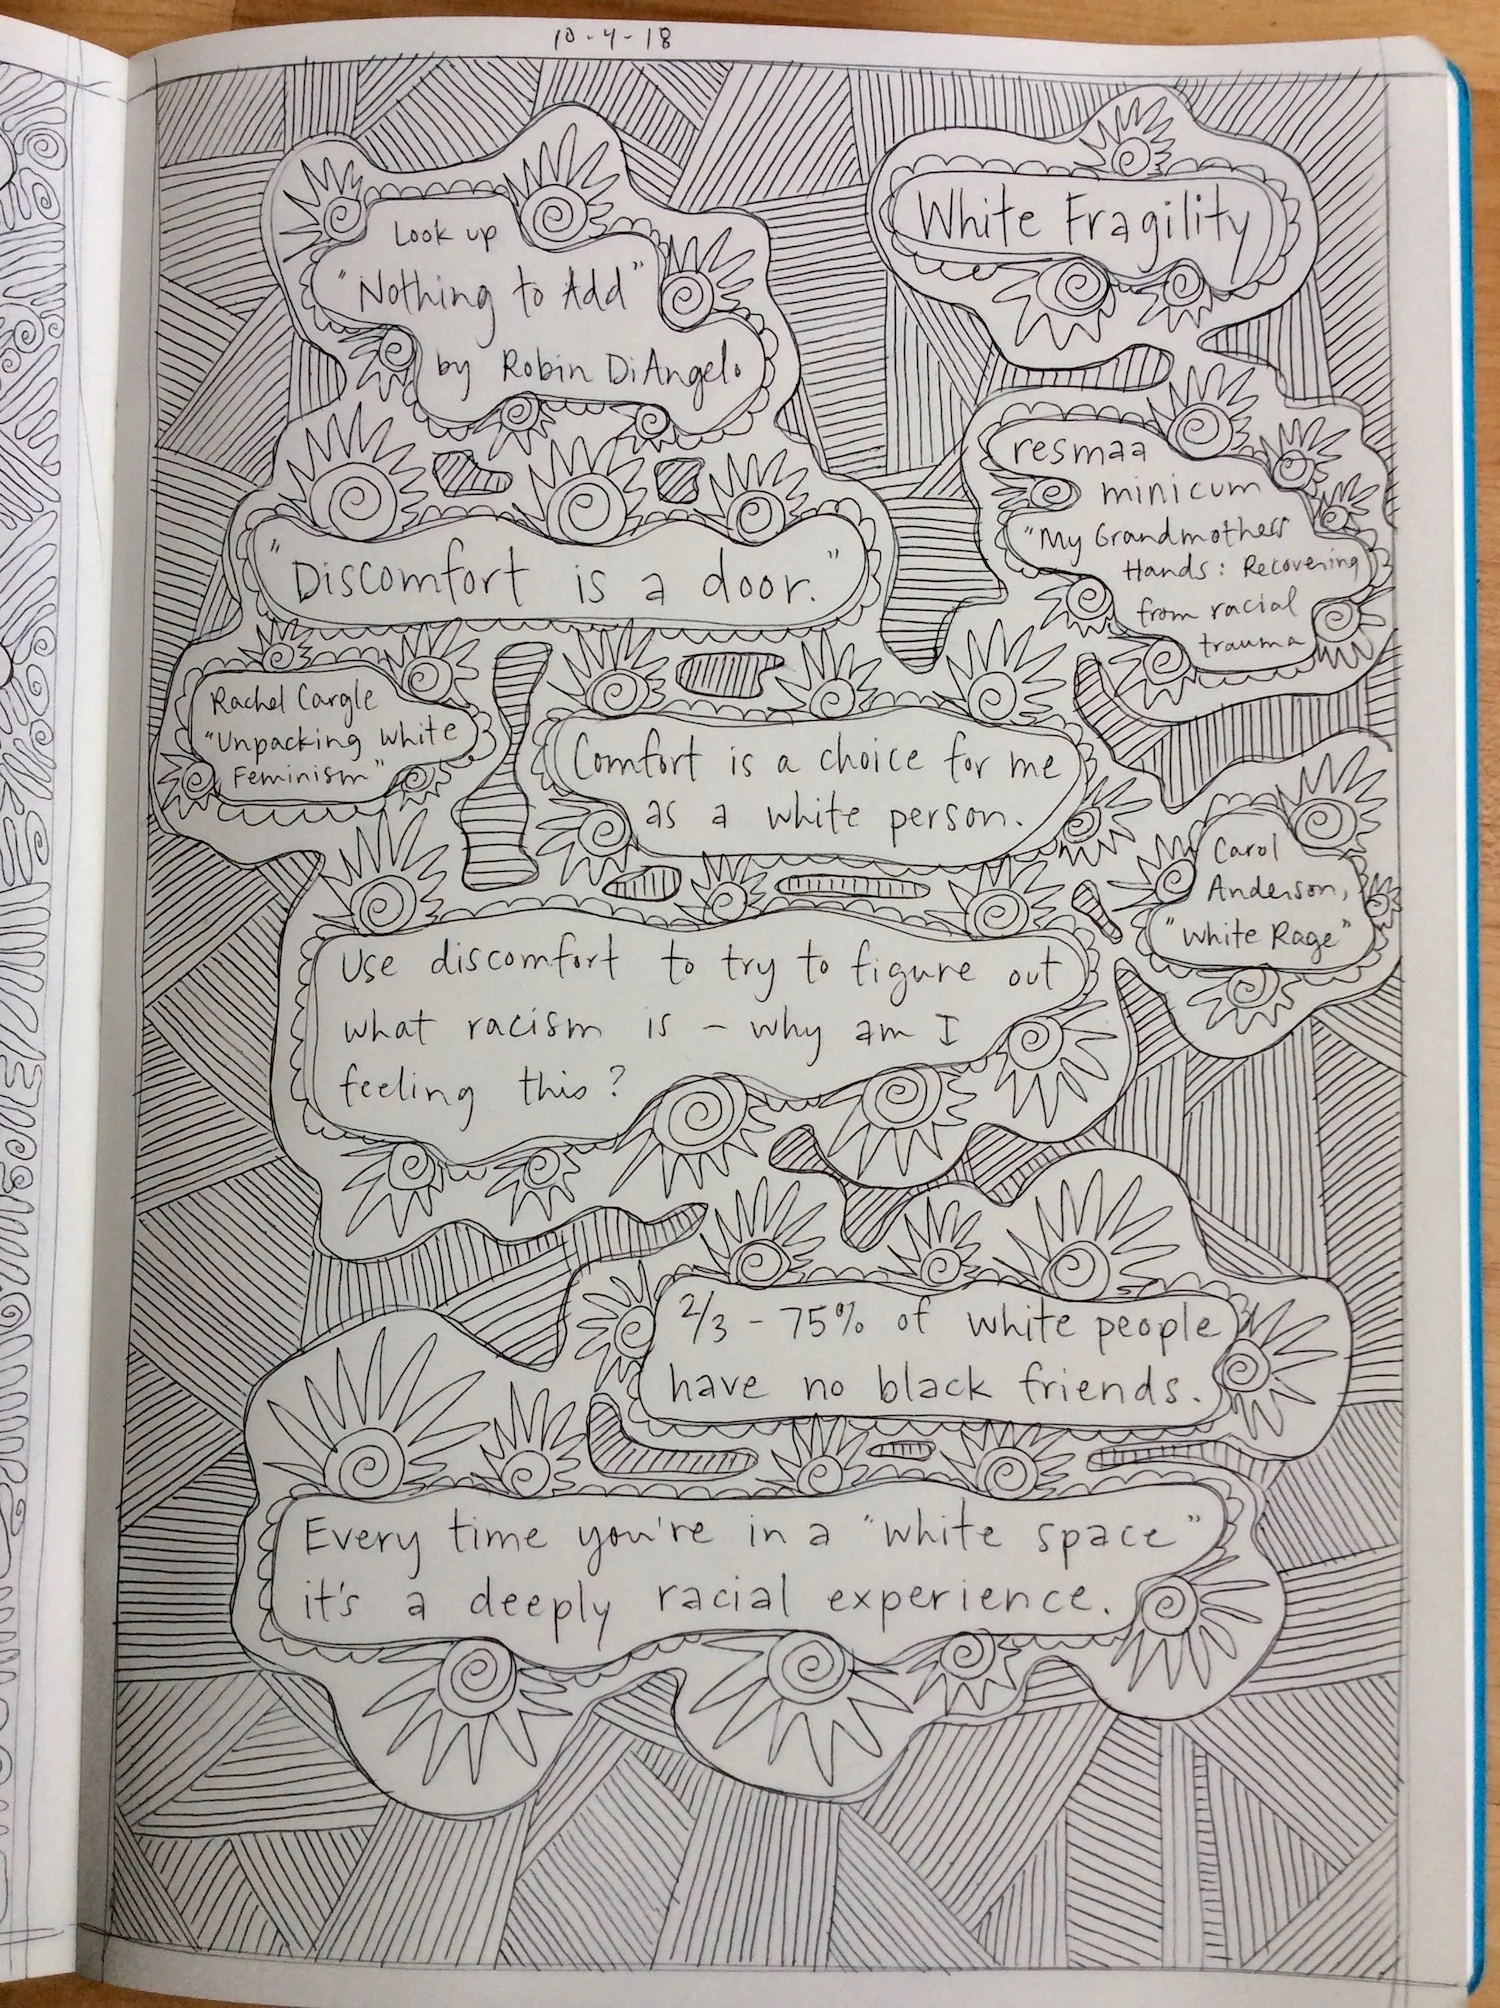 10-4-18
Look up
"Nothing to Add"
by Robin DiAngelo
White Fragility
resmaa
minicum
"My Grandmothers
Hands: Recovering
from racial
trauma
"Discomfort is a door."
Rachel Cargle
"Unpacking White
Feminism"
Comfort is a choice for me
as a white person.
Carol
Anderson,
"White Rage"
Use discomfort to try to figure out
what racism is - why am I
feeling this?
2/3 - 75% of white people
have no black friends.
Every time you're in a "white space"
it's a deeply racial experience.